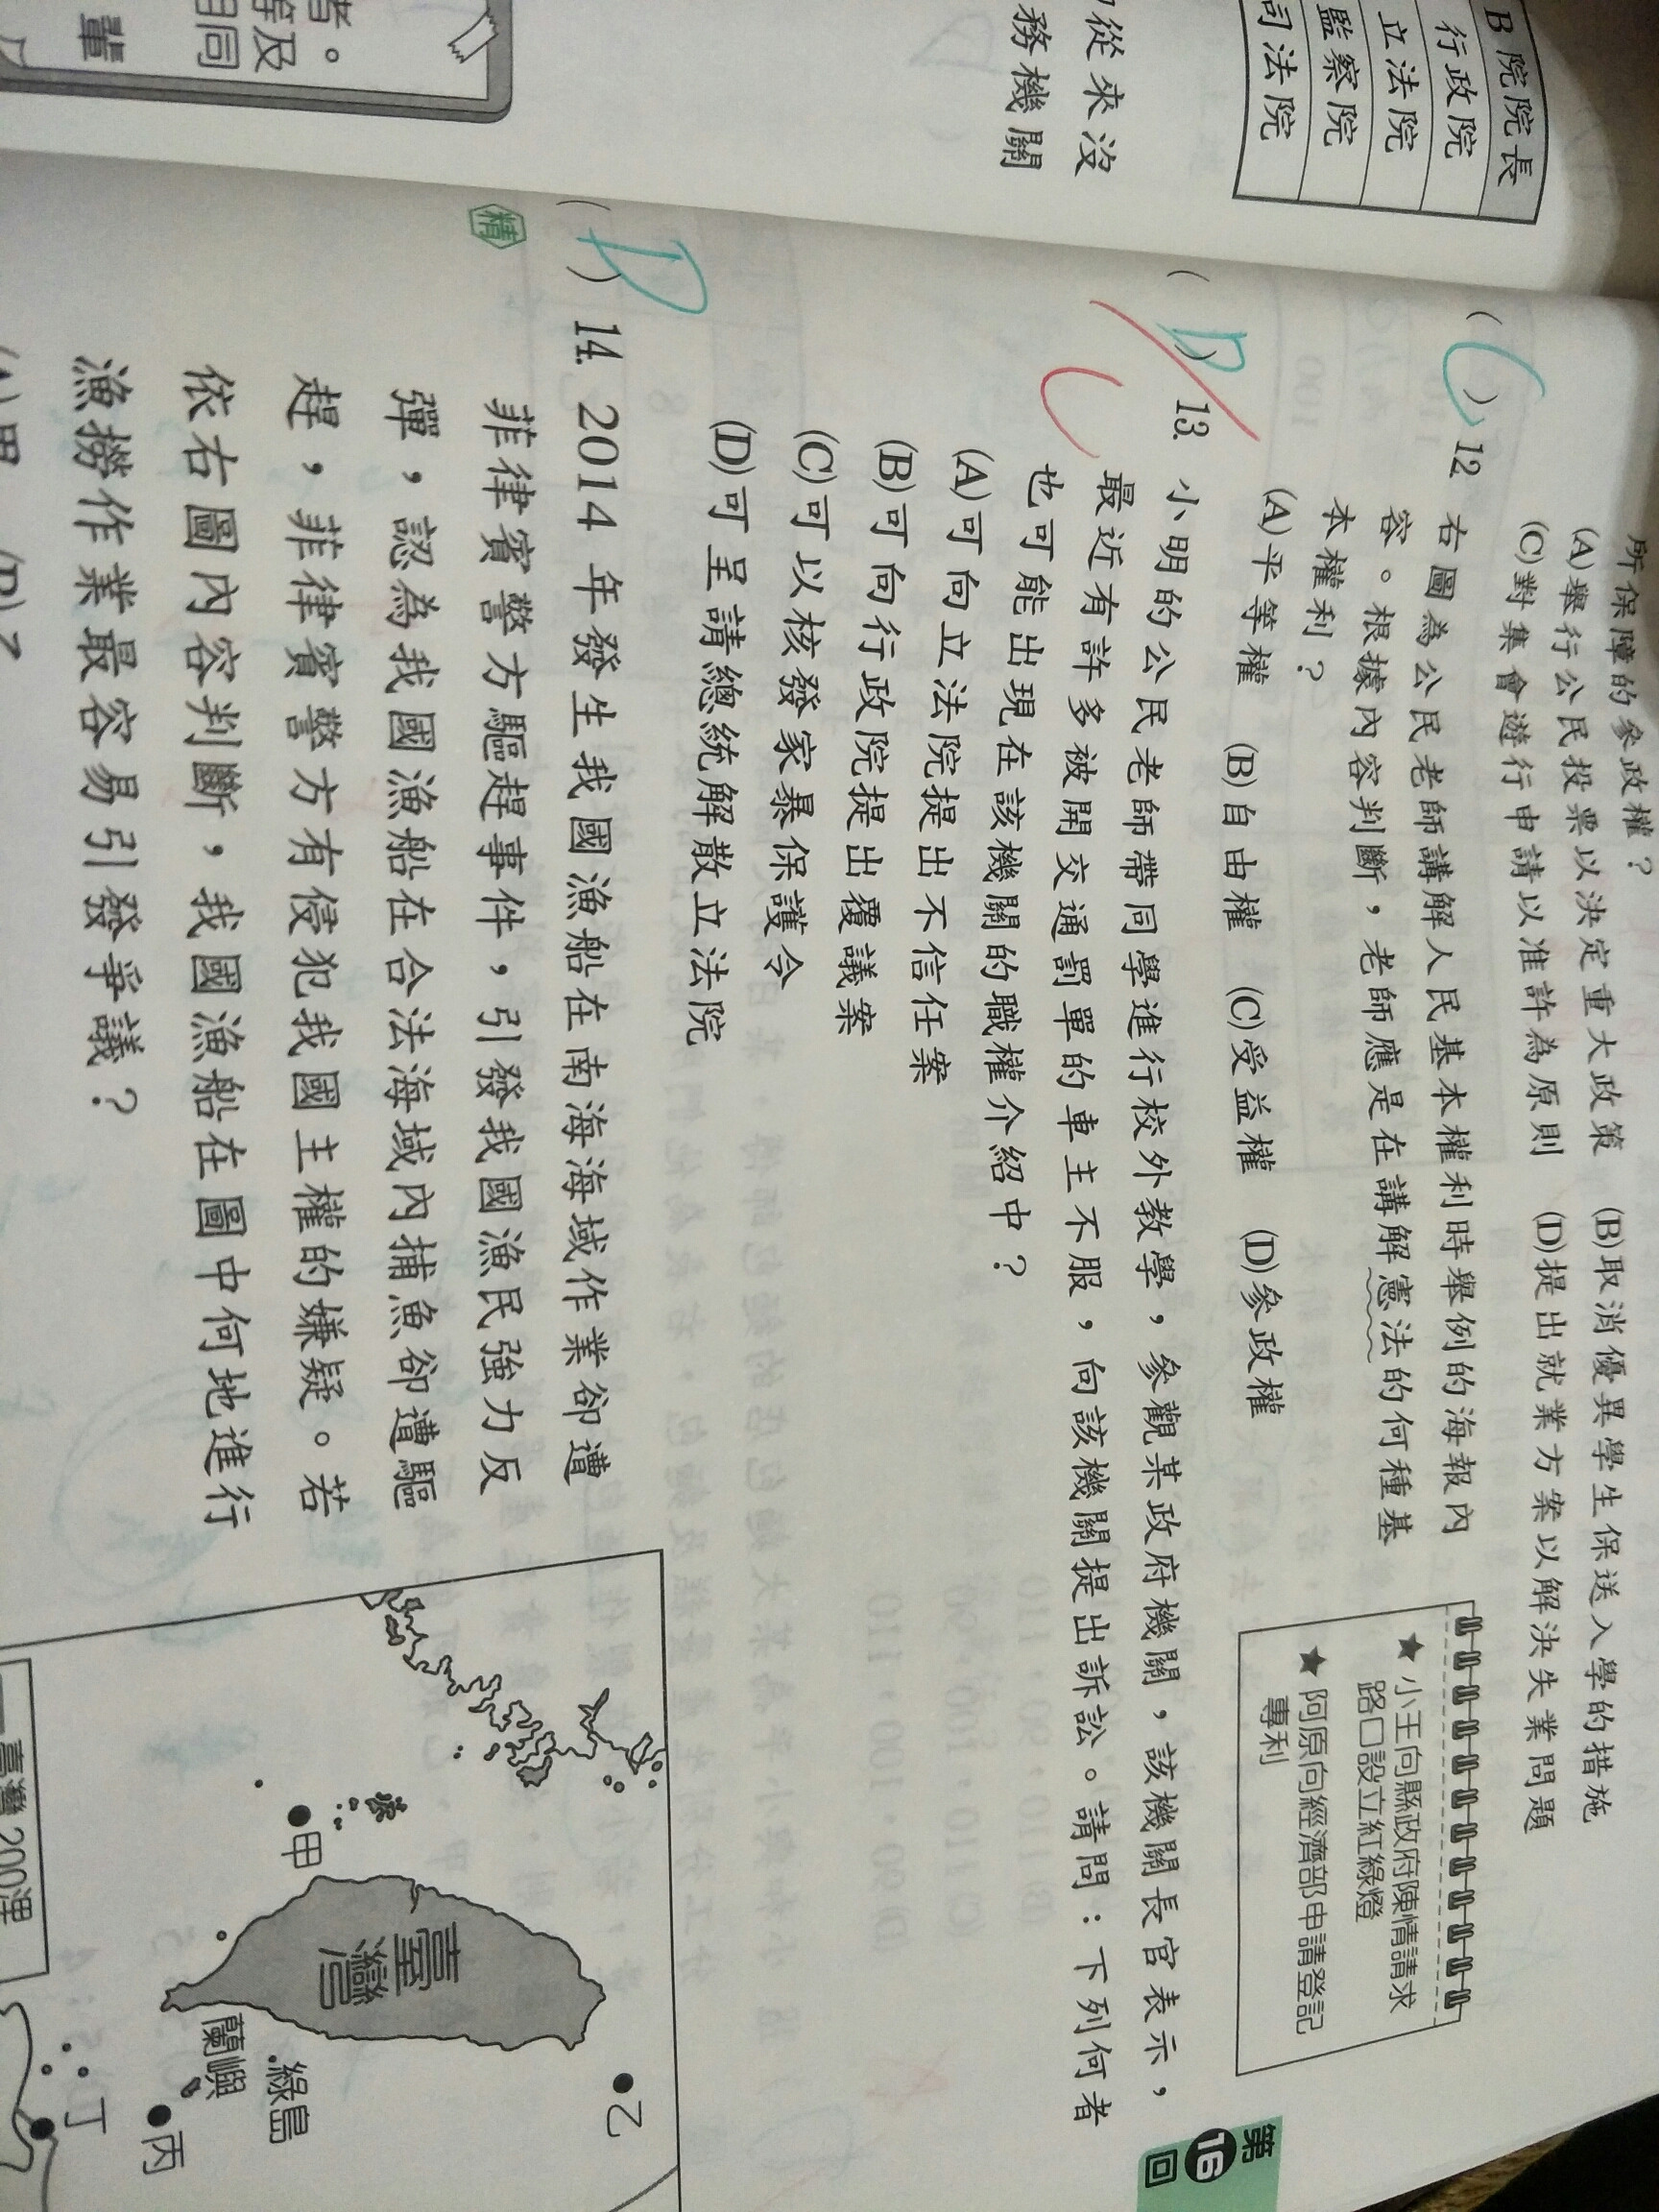 B院院長
行政院
立法院
監察院
司法院
從來沒
務機關
者。
等及
相同
輩
第16回
所保障的參政權?
(A)舉行公民投票以決定重大政策 (B)取消優異學生保送入學的措施
(C)對集會遊行申請以准許為原則 (D)提出就業方案以解決失業問題
( C ) 12. 右圖為公民老師講解人民基本權利時舉例的海報內
容。根據內容判斷,老師應是在講解憲法的何種基
本權利?
(A)平等權 (B)自由權 (C)受益權 (D)參政權
★小王向縣政府陳情請求
路口設立紅綠燈
★阿原向經濟部申請登記
專利
( D ) 13. 小明的公民老師帶同學進行校外教學,參觀某政府機關,該機關長官表示,
C
最近有許多被開交通罰單的車主不服,向該機關提出訴訟。請問:下列何者
也可能出現在該機關的職權介紹中?
(A)可向立法院提出不信任案
(B)可向行政院提出覆議案
(C)可以核發家暴保護令
(D)可呈請總統解散立法院
( D ) 14. 2014 年發生我國漁船在南海海域作業卻遭
精
菲律賓警方驅趕事件,引發我國漁民強力反
彈,認為我國漁船在合法海域內捕魚卻遭驅
趕,菲律賓警方有侵犯我國主權的嫌疑。若
依右圖內容判斷,我國漁船在圖中何地進行
漁撈作業最容易引發爭議?
(A)甲 (B)乙
乙
臺灣
甲
綠島
蘭嶼
丙
丁
臺灣 200浬